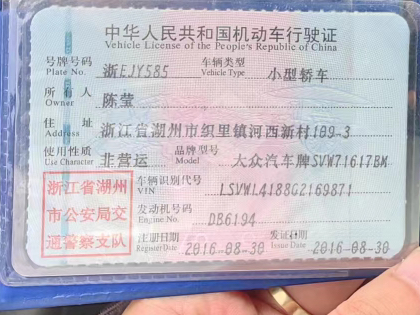 中华人民共和国机动车行驶证
Vehicle License of the People's Republic of China
号牌号码 浙EJY585 车辆类型 小型轿车
Plate No. Vehicle Type
所有人 陈莹
Owner
住址 浙江省湖州市织里镇河西新村109-3
Address
使用性质 非营运 品牌型号 大众汽车牌SVW71617BM
Use Character Model
浙江省湖州
市公安局交
通警察支队
车辆识别代号 LSVWL4188G2169871
VIN
发动机号码 DB6194
Engine No.
注册日期 2016-08-30 发证日期 2016-08-30
Register Date Issue Date